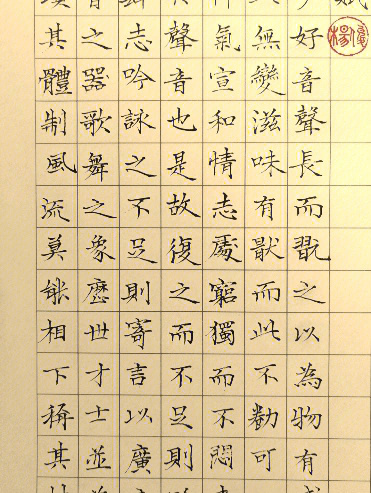 好音聲長而翫之以為物有
無變滋味有猒而此不勌可
氣宣和情志處窮獨而不悶
聲音也是故復之而不足則
志吟詠之不足則寄言以廣
之器歌舞之象歷世才士並
其體制風流莫能相下稱其